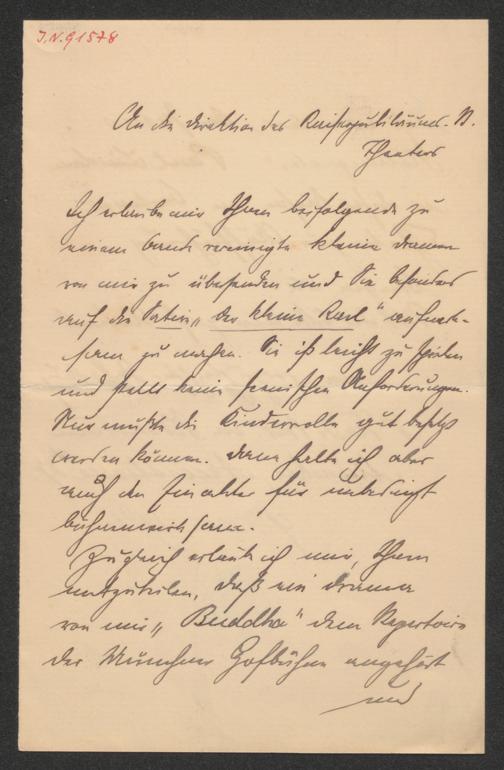 J.N. 91578
An die Direktion des Kaiserjubiläums-St.
Theaters
Ich erlaube mir Ihnen beifolgende zu
einem Bande vereinigte kleine Dramen
von mir zu übersenden und Sie besonders
auf die Satire „der kleine Karl" aufmerk-
sam zu machen. Sie ist leicht zu spielen
und stellt keine scenischen Anforderungen.
Nur müßte die Kinderrolle gut besetzt
werden können. Dann halte ich aber
auch den Einakter für unbedingt
bühnenwirksam.
Zugleich erlaube ich mir, Ihnen
mitzuteilen, daß ein Drama
von mir „Buddha" dem Repertoire
der Münchner Hofbühne angehört
und